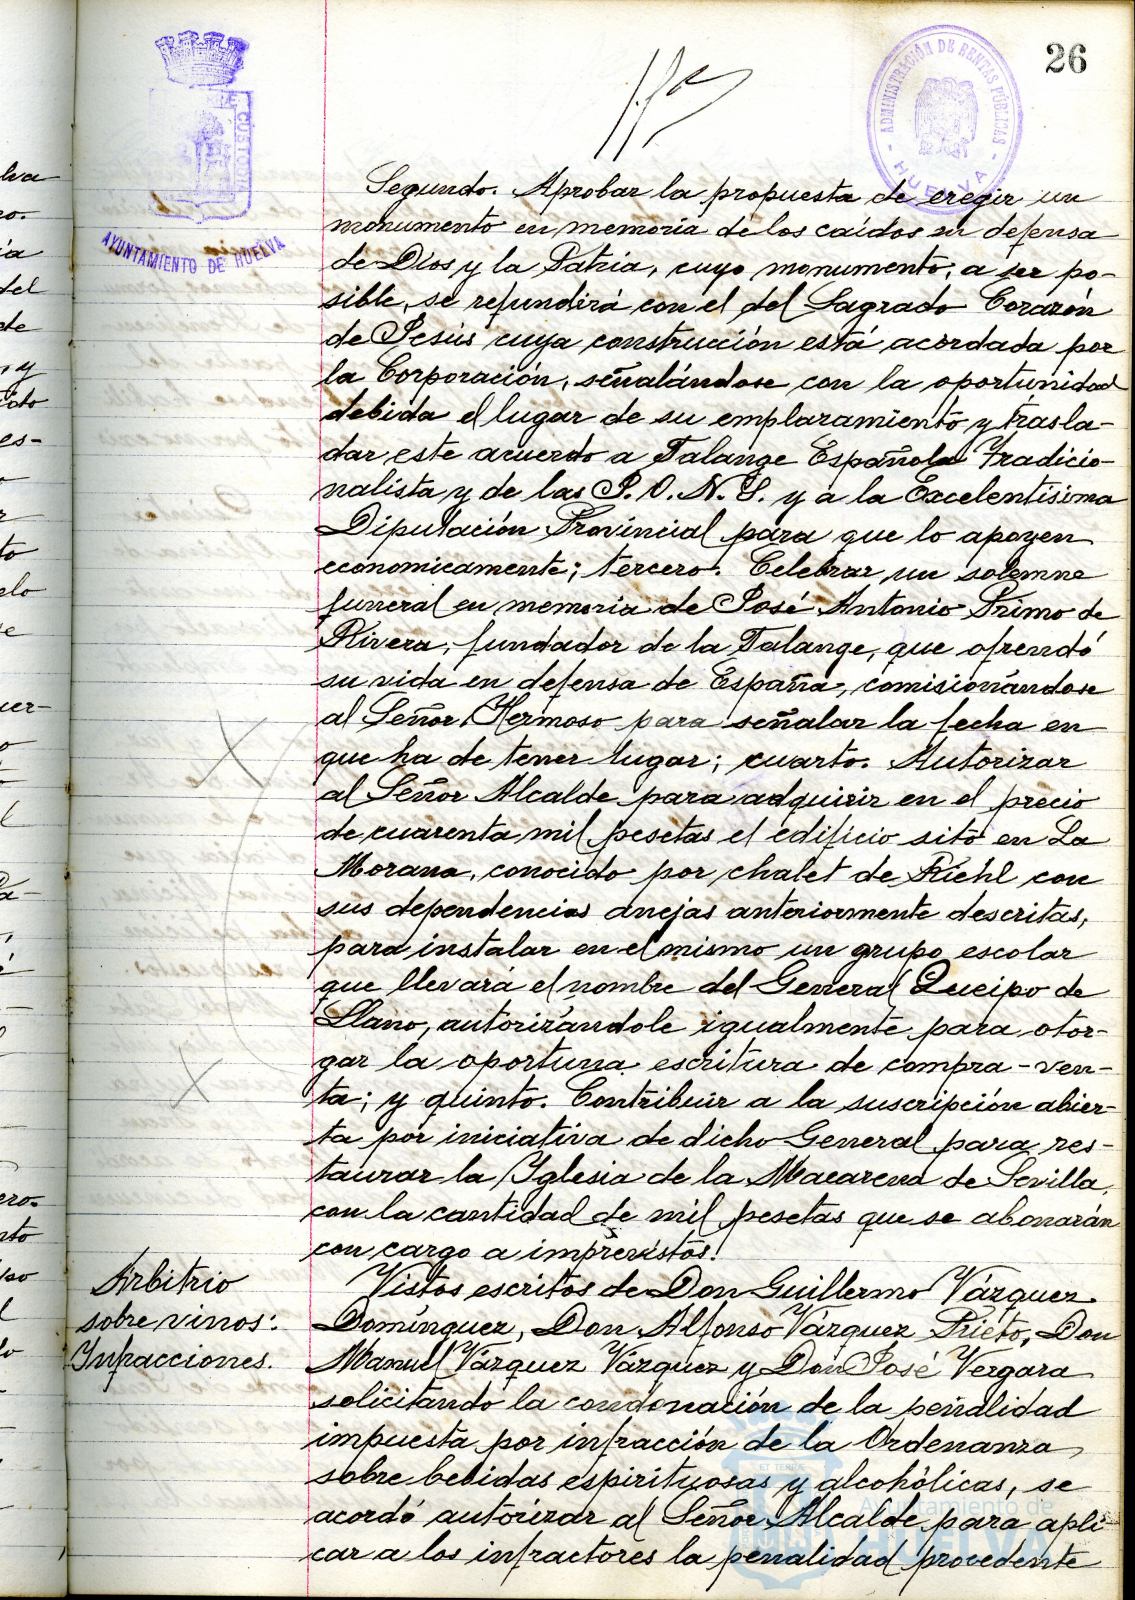 26
ADMINISTRACIÓN DE RENTAS PÚBLICAS
HUELVA
CUSTOD
AYUNTAMIENTO DE HUELVA
Segundo. Aprobar la propuesta de eregir un
monumento en memoria de los caídos en defensa
de Dios y la Patria, cuyo monumento, a ser po-
sible, se refundirá con el del Sagrado Corazón
de Jesús cuya construcción está acordada por
la Corporación, señalándose con la oportunidad
debida el lugar de su emplazamiento y trasla-
dar este acuerdo a Falange Española Tradicio-
nalista y de las J.O.N.S. y a la Excelentísima
Diputación Provincial para que lo apoyen
economicamente; tercero. Celebrar un solemne
funeral en memoria de José Antonio Primo de
Rivera, fundador de la Falange, que ofrendó
su vida en defensa de España, comisionándose
al Señor Hermoso para señalar la fecha en
que ha de tener lugar; cuarto. Autorizar
al Señor Alcalde para adquirir en el precio
de cuarenta mil pesetas el edificio sito en La
Morana, conocido por chalet de Riehl con
sus dependencias anejas anteriormente descritas,
para instalar en el mismo un grupo escolar
que llevará el nombre del General Queipo de
Llano, autorizándole igualmente para otor-
gar la oportuna escritura de compra-ven-
ta; y quinto. Contribuir a la suscripción abier-
ta por iniciativa de dicho General para res-
taurar la Iglesia de la Macarena de Sevilla,
con la cantidad de mil pesetas que se abonarán
con cargo a imprevistos.
Arbitrio
sobre vinos:
Infracciones.
Vistos escritos de Don Guillermo Vázquez
Domínguez, Don Alfonso Vázquez Prieto, Don
Manuel Vázquez Vázquez y Don José Vergara
solicitando la condonación de la penalidad
impuesta por infracción de la Ordenanza
sobre bebidas espirituosas y alcohólicas, se
acordó autorizar al Señor Alcalde para apli-
car a los infractores la penalidad procedente
Ayuntamiento de
HUELVA